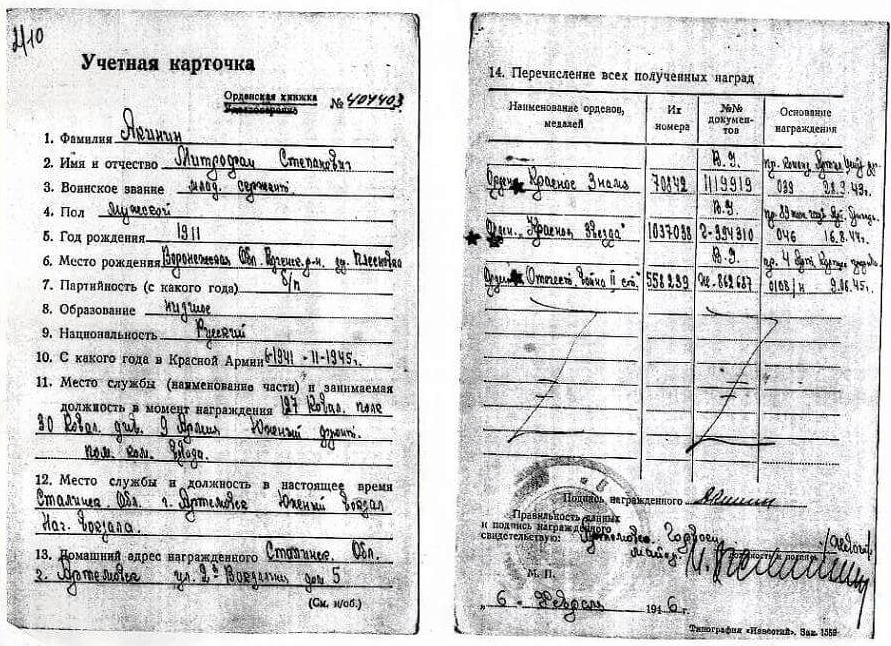 2/10
Учетная карточка
Орденская книжка
Удостоверение
№ 404403
1. Фамилия Якинин
2. Имя и отчество Митрофан Степанович
3. Воинское звание млад. сержант
4. Пол мужской
5. Год рождения 1911
6. Место рождения Воронежская Обл.
7. Партийность (с какого года) б/п
8. Образование низшее
9. Национальность Русский
10. С какого года в Красной Армии 6-1941 - 11-1945г.
11. Место службы (наименование части) и занимаемая
должность в момент награждения 127 Кавал. полк
30 Кавал. див. 9 Армия Южный фронт.
пом. ком. взвода.
12. Место службы и должность в настоящее время
Сталинск. Обл. г. Артемовск Южный вокзал
Нач. вокзала.
13. Домашний адрес награжденного Сталинск. Обл.
г. Артемовск ул. 2я Вокзальн. дом 5
(См. н/об.)
14. Перечисление всех полученных наград
Наименование орденов, медалей
Их номера
№№ документов
Основание награждения
В.У.
Орден Красное Знамя 70842 1119919 039 28.9.43г.
В.У.
Орден „Красная Звезда" 1037038 Г-394310 046 16.8.44г.
В.У.
Орден Отечеств. Войны II ст. 558239 Ж-862687 0108/н 9.06.45г.
Подпись награжденного
Правильность данных
и подпись награжденного
свидетельствую: Артемовск. Горвоен
майор
должность и подпись
М. П.
„6" Февраля 1946г.
Типография «Известий». Зак. 1559